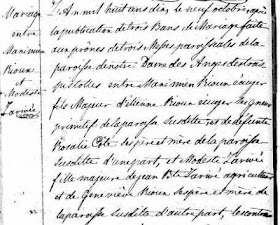 Mariage
entre
Rioux
&
Modeste
L'an mil huit cent dix, le neuf octobre, après
la publication de trois Bans de Mariage faite
aux prônes de trois Messes paroissiales de la
paroisse de notre Dame des Anges des trois
pistolles entre Rioux écuyer
fils Majeur d'Etienne Rioux écuyer Seigneur
primitif de la paroisse Susdite et de défunte
Rosalie Côté ses père et mère de la paroisse
Susdite d'une part, et Modeste
fille majeure de jean Bte agriculteur
et de Geneviève Rioux ses père et mère de
la paroisse susdite d'autre part,